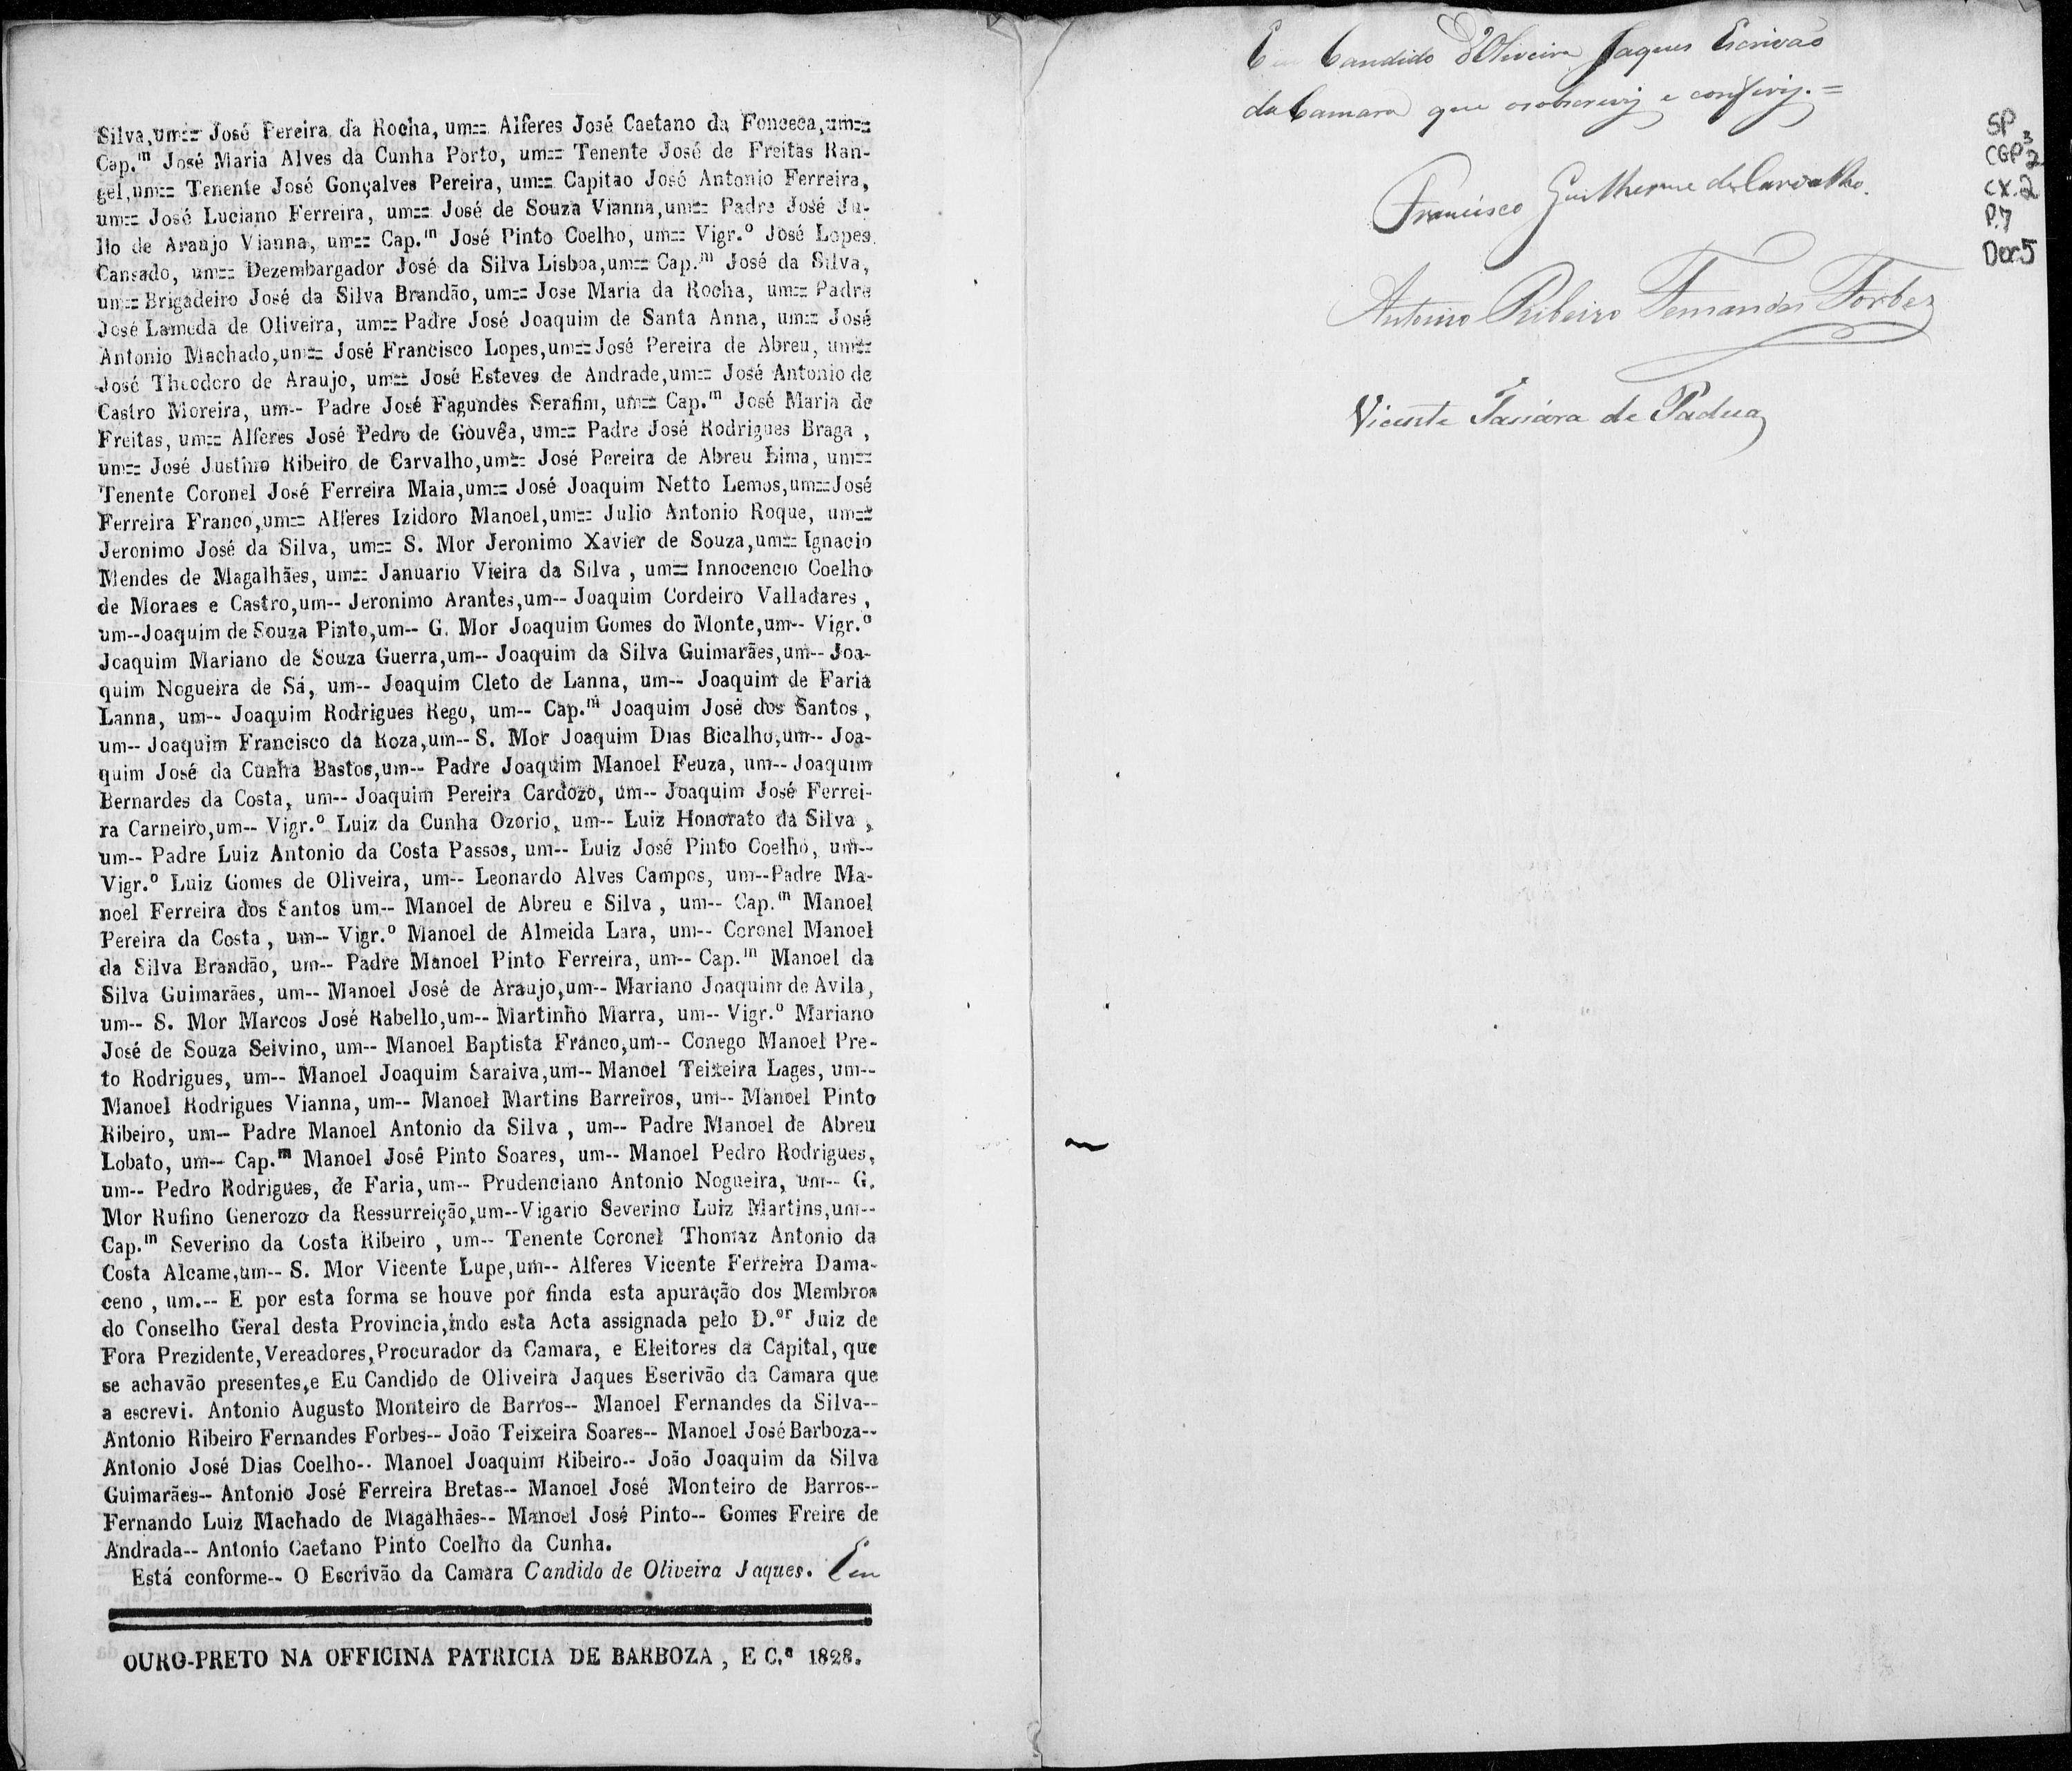 Silva,um== José Pereira da Rocha, um== Alferes José Caetano da Fonceca,um==
Cap.m José Maria Alves da Cunha Porto, um== Tenente José de Freitas Ran-
gel,um== Tenente José Gonçalves Pereira, um== Capitao José Antonio Ferreira,
um== José Luciano Ferreira, um== José de Souza Vianna,um== Padre José Ju-
lio de Araujo Vianna, um== Cap.m José Pinto Coelho, um== Vigr.o José Lopes
Cansado, um== Dezembargador José da Silva Lisboa,um== Cap.m José da Silva,
um== Brigadeiro José da Silva Brandão, um== Jose Maria da Rocha, um== Padre
José Lameda de Oliveira, um== Padre José Joaquim de Santa Anna, um== José
Antonio Machado,um== José Francisco Lopes,um== José Pereira de Abreu, um==
José Theodoro de Araujo, um== José Esteves de Andrade,um== José Antonio de
Castro Moreira, um-- Padre José Fagundes Serafim, um== Cap.m José Maria de
Freitas, um== Alferes José Pedro de Gouvêa, um== Padre José Rodrigues Braga ,
um== José Justino Ribeiro de Carvalho,um== José Pereira de Abreu Lima, um==
Tenente Coronel José Ferreira Maia,um== José Joaquim Netto Lemos,um== José
Ferreira Franco,um== Alferes Izidoro Manoel,um== Julio Antonio Roque, um==
Jeronimo José da Silva, um== S. Mor Jeronimo Xavier de Souza,um== Ignacio
Mendes de Magalhães, um== Januario Vieira da Silva , um== Innocencio Coelho
de Moraes e Castro,um-- Jeronimo Arantes,um-- Joaquim Cordeiro Valladares ,
um--Joaquim de Souza Pinto,um-- G. Mor Joaquim Gomes do Monte,um-- Vigr.o
Joaquim Mariano de Souza Guerra,um-- Joaquim da Silva Guimarães,um-- Joa-
quim Nogueira de Sá, um-- Joaquim Cleto de Lanna, um-- Joaquim de Faria
Lanna, um-- Joaquim Rodrigues Rego, um-- Cap.m Joaquim José dos Santos ,
um-- Joaquim Francisco da Roza,um-- S. Mor Joaquim Dias Bicalho,um-- Joa-
quim José da Cunha Bastos,um-- Padre Joaquim Manoel Feuza, um-- Joaquim
Bernardes da Costa, um-- Joaquim Pereira Cardozo, um-- Joaquim José Ferrei-
ra Carneiro,um-- Vigr.o Luiz da Cunha Ozorio, um-- Luiz Honorato da Silva ,
um-- Padre Luiz Antonio da Costa Passos, um-- Luiz José Pinto Coelho, um--
Vigr.o Luiz Gomes de Oliveira, um-- Leonardo Alves Campos, um--Padre Ma-
noel Ferreira dos Santos um-- Manoel de Abreu e Silva , um-- Cap.m Manoel
Pereira da Costa , um-- Vigr.o Manoel de Almeida Lara, um-- Coronel Manoel
da Silva Brandão, um-- Padre Manoel Pinto Ferreira, um-- Cap.m Manoel da
Silva Guimarães, um-- Manoel José de Araujo,um-- Mariano Joaquim de Avila,
um-- S. Mor Marcos José Rabello,um-- Martinho Marra, um-- Vigr.o Mariano
José de Souza Seivino, um-- Manoel Baptista Franco,um-- Conego Manoel Pre-
to Rodrigues, um-- Manoel Joaquim Saraiva,um-- Manoel Teixeira Lages, um--
Manoel Rodrigues Vianna, um-- Manoel Martins Barreiros, um-- Manoel Pinto
Ribeiro, um-- Padre Manoel Antonio da Silva , um-- Padre Manoel de Abreu
Lobato, um-- Cap.m Manoel José Pinto Soares, um-- Manoel Pedro Rodrigues,
um-- Pedro Rodrigues, de Faria, um-- Prudenciano Antonio Nogueira, um-- G.
Mor Rufino Generozo da Ressurreição,um--Vigario Severino Luiz Martins,um--
Cap.m Severino da Costa Ribeiro , um-- Tenente Coronel Thomaz Antonio da
Costa Alcame,um-- S. Mor Vicente Lupe,um-- Alferes Vicente Ferreira Dama-
ceno , um.-- E por esta forma se houve por finda esta apuração dos Membros
do Conselho Geral desta Provincia,indo esta Acta assignada pelo D.or Juiz de
Fora Prezidente,Vereadores,Procurador da Camara, e Eleitores da Capital, que
se achavão presentes,e Eu Candido de Oliveira Jaques Escrivão da Camara que
a escrevi. Antonio Augusto Monteiro de Barros-- Manoel Fernandes da Silva--
Antonio Ribeiro Fernandes Forbes-- João Teixeira Soares-- Manoel José Barboza--
Antonio José Dias Coelho-- Manoel Joaquim Ribeiro-- João Joaquim da Silva
Guimarães-- Antonio José Ferreira Bretas-- Manoel José Monteiro de Barros--
Fernando Luiz Machado de Magalhães-- Manoel José Pinto-- Gomes Freire de
Andrada-- Antonio Caetano Pinto Coelho da Cunha.
Está conforme-- O Escrivão da Camara Candido de Oliveira Jaques. Eu
OURO-PRETO NA OFFICINA PATRICIA DE BARBOZA , E C.a 1828.
Eu Candido d'Oliveira Jaques Escrivão
da Camara que osobscrevij e conferij.=
Francisco Guilherme de Carvalho.
Antonio Ribeiro Fernandes Forbes
Vicente de Padua
SP
CGP3 2
CX.2
P.7
Doc5